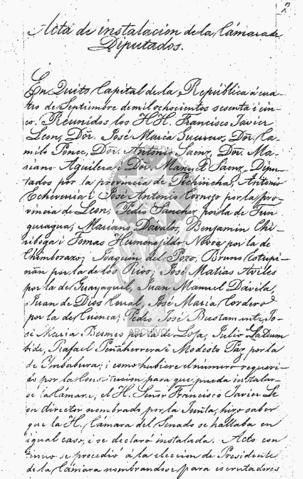 2
Acta de instalacion de la Cámara de
Diputados.
En Quito Capital de la República á cua-
tro de Septiembre de mil ochocientos sesenta i cin-
co. Reunidos los H.H. Francisco Javier
Leon, Dor. José María Sucurco, Dor. Ca-
milo Ponce, Dor. Antonio Saenz, Dor. Ma-
riano Aguilera, Dor. Manuel Saenz, Dipu-
tados por la provincia de Pichincha; Antonio
Echeverría i José Antonio Cornejo por la pro-
vincia de Leon; Pedro Sanchez por la de Tun-
guragua; Mariano Davalos, Benjamin Chi-
riboga i Tomas Hermenejildo Nivora por la de
Chimborazo; Joaquin del Pozo, Bruno
por la de los Rios; José Matias Aviles
por la de Guayaquil; Juan Manuel Davila,
Juan de Dios Corral, José Maria Cordero
por la de Cuenca; Pedro José Bustamante, Jo-
sé Maria Bermeo por la de Loja; Julio
Rafael Peñaherrera i Modesto Paz por la
de Imbabura; i como hubiese el número requeri-
do por la Constitucion para que pueda instalar-
se la Cámara, el H. Señor Francisco Javier Le-
on director nombrado por la Junta, hizo saber
que la H. Cámara del Senado se hallaba en
igual caso, i se declaró instalada. Acto con-
tinuo se procedió á la eleccion de Presidente
de la Cámara nombrandose para escrutadores